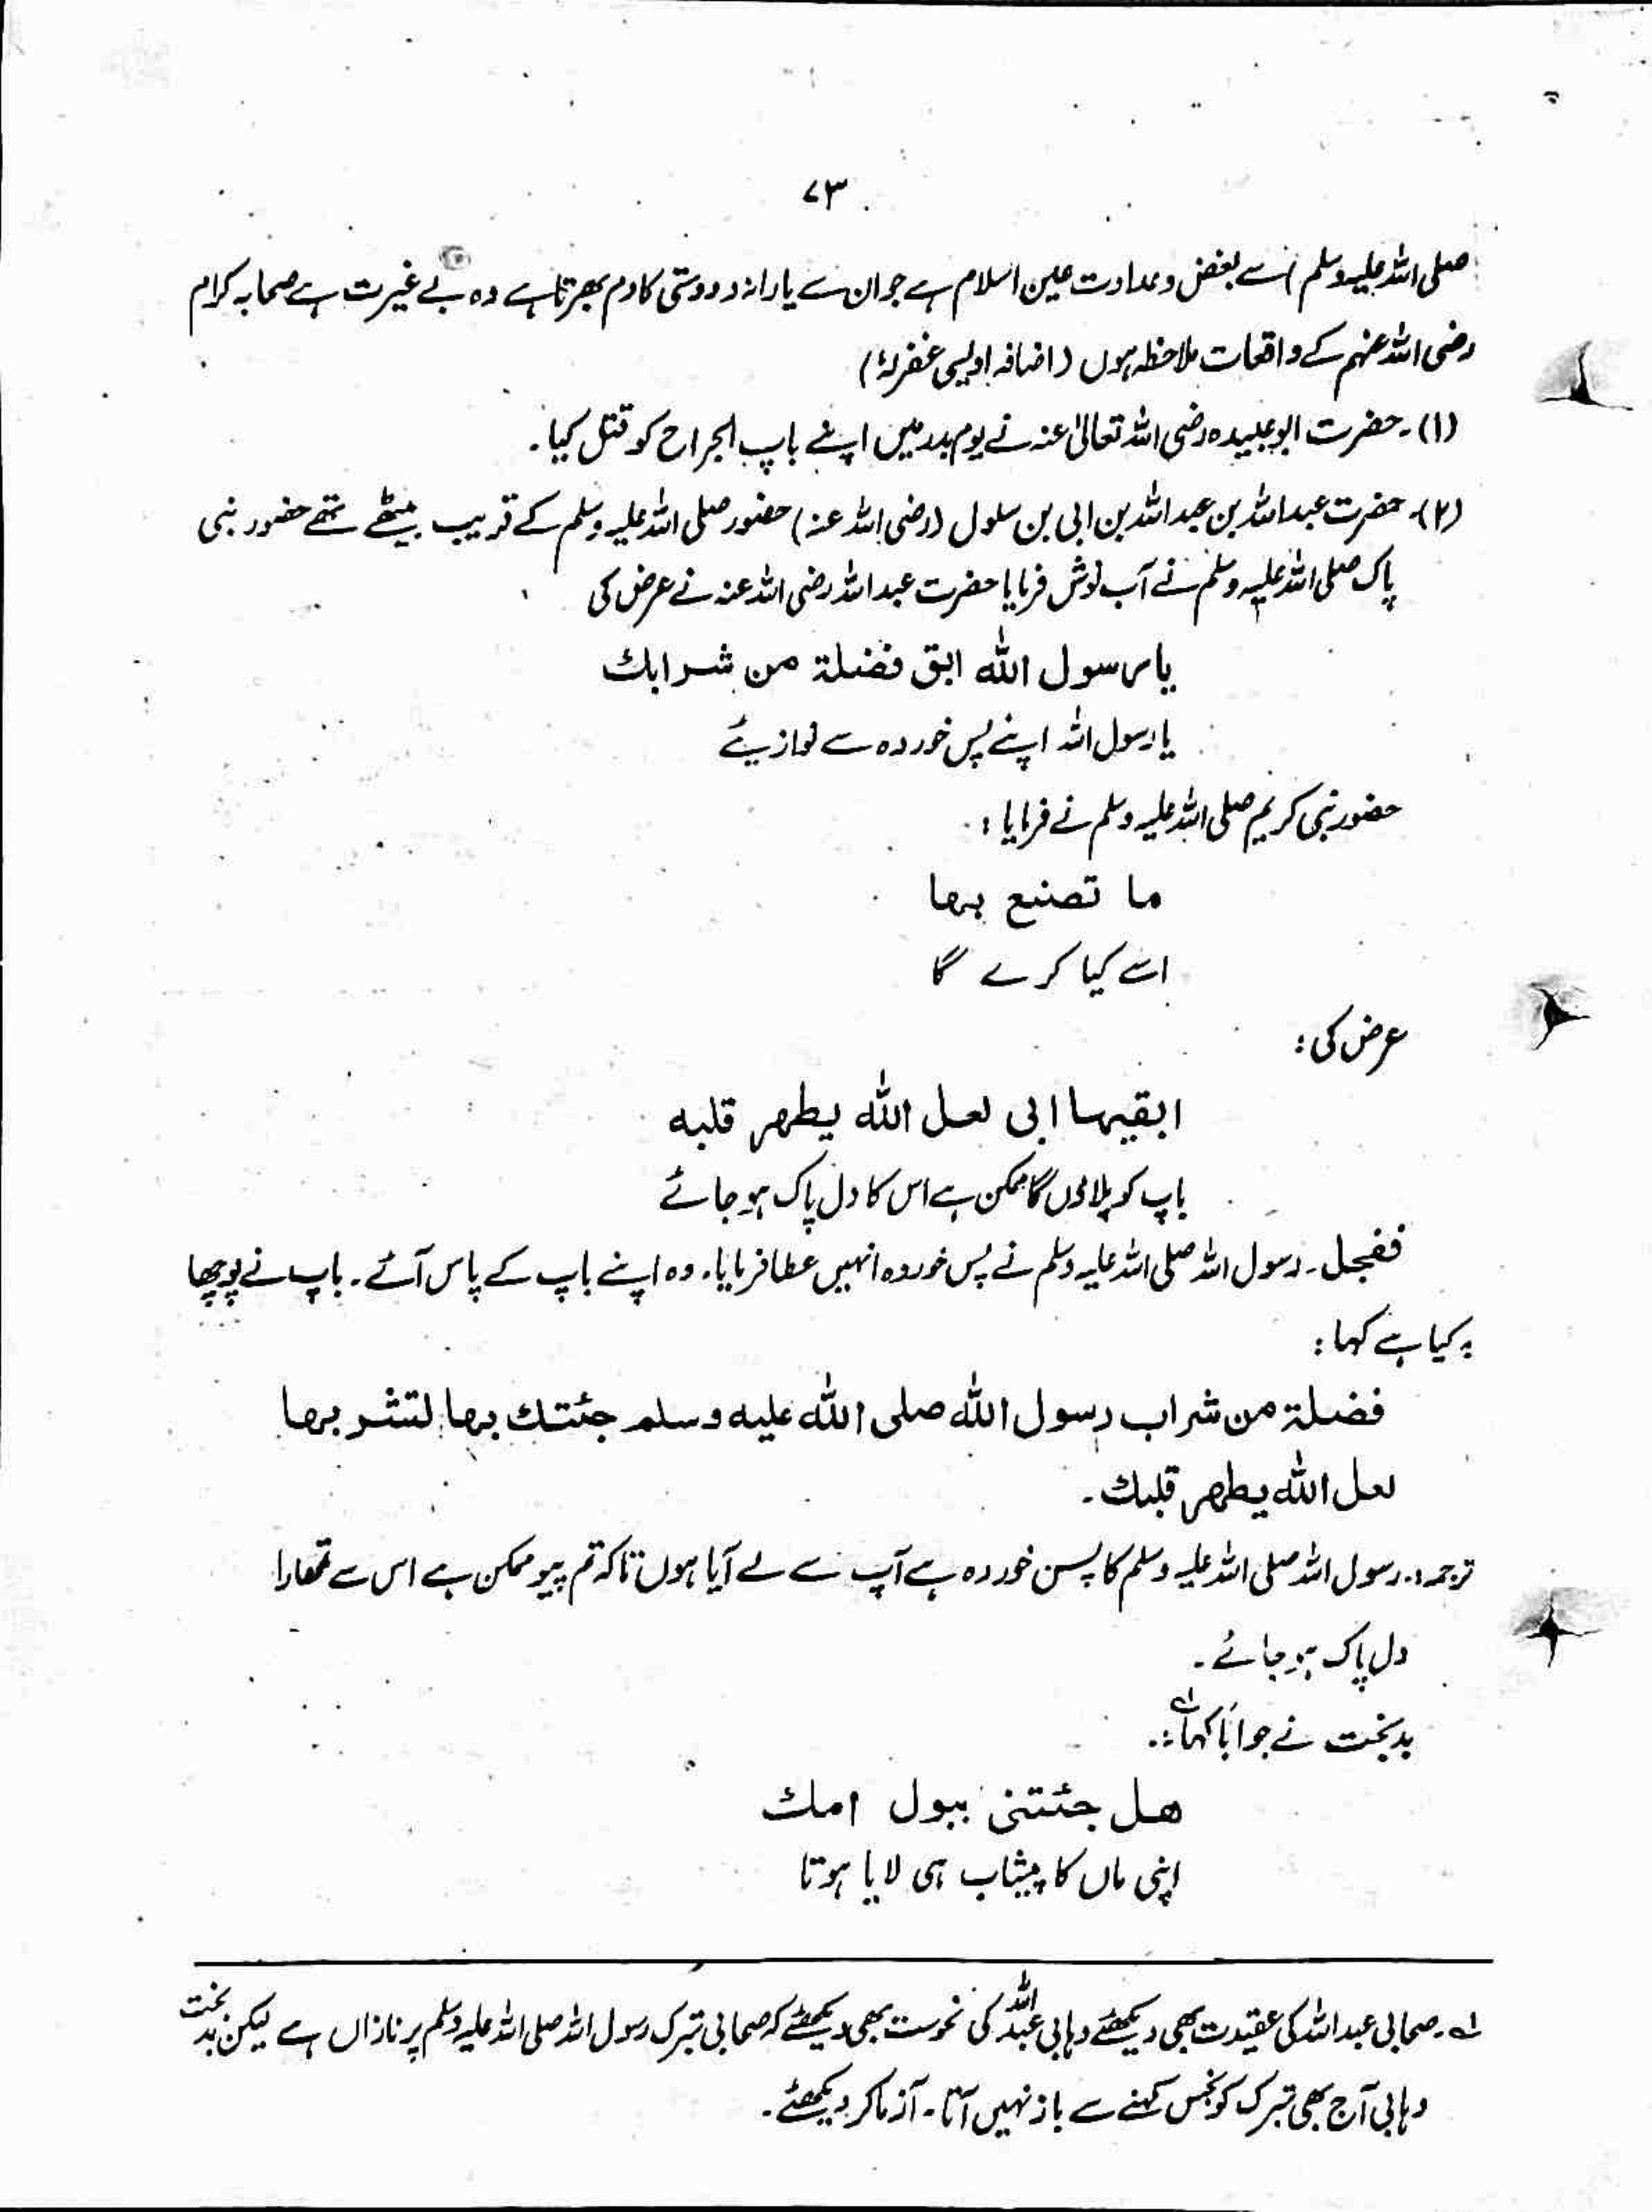 ۷۳
صلی اللہ علیہ وسلم) سے بغض و عداوت عین اسلام ہے جو ان سے یارانہ و دوستی کا دم بھرتا ہے وہ بے غیرت ہے صحابہ کرام
رضی اللہ عنہم کے واقعات ملاحظہ ہوں (اضافہ اویسی غفرلہٗ)
(۱)۔ حضرت ابوعبیدہ رضی اللہ تعالیٰ عنہ نے یوم بدر میں اپنے باپ الجراح کو قتل کیا۔
(۲)۔ حضرت عبداللہ بن عبداللہ بن ابی بن سلول (رضی اللہ عنہ) حضور صلی اللہ علیہ وسلم کے قریب بیٹھے تھے حضور نبی
پاک صلی اللہ علیہ وسلم نے آب نوش فرمایا حضرت عبداللہ رضی اللہ عنہ نے عرض کی
یارسول الله ابق فضلة من شرابك
یارسول اللہ اپنے پس خوردہ سے نوازیئے
حضور نبی کریم صلی اللہ علیہ وسلم نے فرمایا :
ما تصنع بها
اسے کیا کرے گا
عرض کی :
ابقیها ابی لعل الله یطهر قلبه
باپ کو پلاؤں گا ممکن ہے اس کا دل پاک ہو جائے
ففجل۔ رسول اللہ صلی اللہ علیہ وسلم نے پس خوردہ انہیں عطا فرمایا۔ وہ اپنے باپ کے پاس آئے۔ باپ نے پوچھا
یہ کیا ہے کہا :
فضلة من شراب رسول الله صلی الله علیه وسلم جئتك بها لتشربها
لعل الله یطهر قلبك۔
ترجمہ : رسول اللہ صلی اللہ علیہ وسلم کا پس خوردہ ہے آپ سے لے آیا ہوں تاکہ تم پیو ممکن ہے اس سے تمھارا
دل پاک ہو جائے۔
بدبخت نے جواباً کہا :
هل جئتنی ببول امك
اپنی ماں کا پیشاب ہی لایا ہوتا
لہ۔ صحابی عبداللہ کی عقیدت بھی دیکھئے وہابی عبداللہ کی نحوست بھی دیکھئے کہ صحابی تبرک رسول اللہ صلی اللہ علیہ وسلم پر نازاں ہے لیکن بدبخت
وہابی آج بھی تبرک کو نجس کہنے سے باز نہیں آتا۔ آزما کر دیکھئے۔